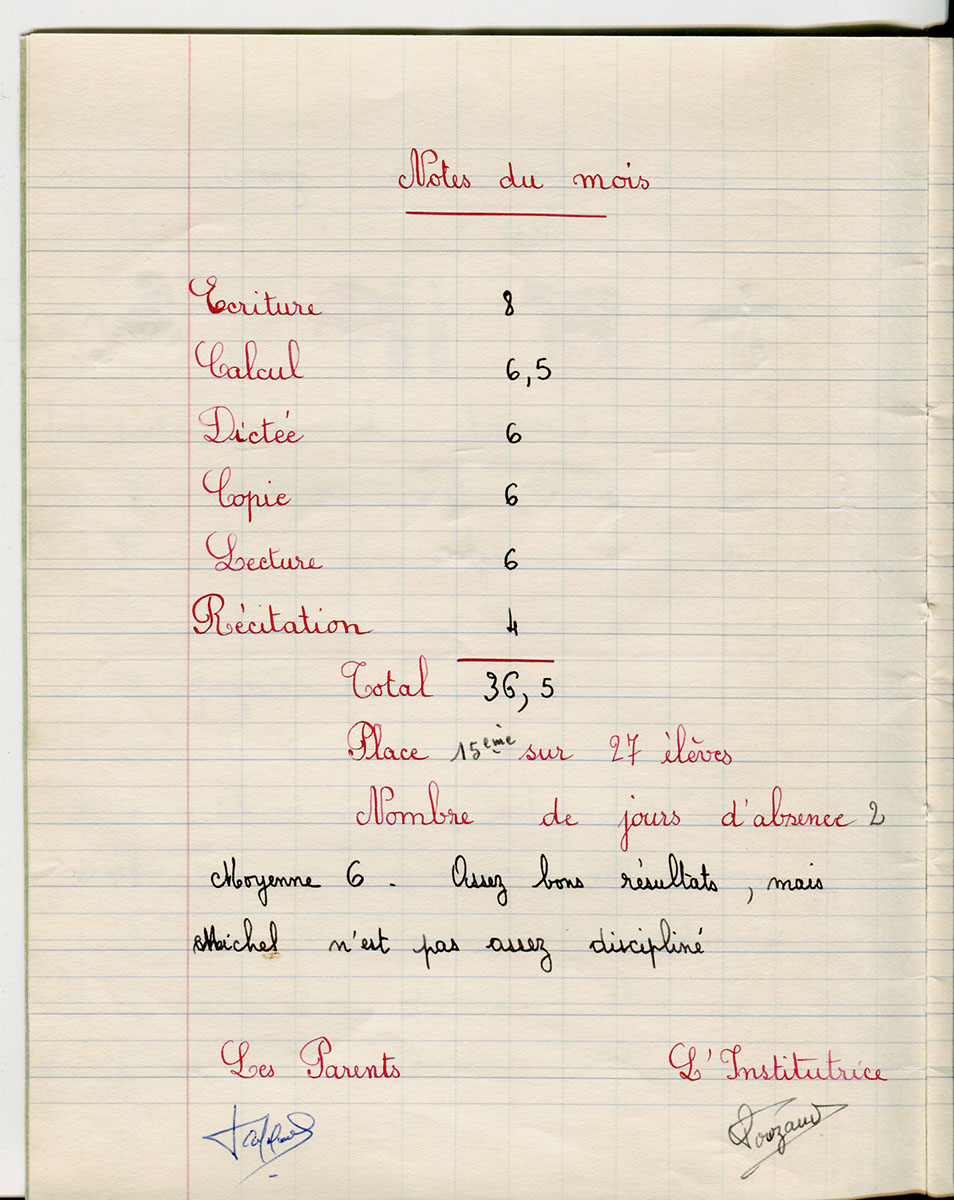 Notes du mois
Ecriture 8
Calcul 6,5
Dictée 6
Copie 6
Lecture 6
Récitation 4
Total 36,5
Place 15ème sur 27 élèves
Nombre de jours d'absence 2
Moyenne 6 - Assez bons résultats, mais
Michel n'est pas assez discipliné
Les Parents L'Institutrice